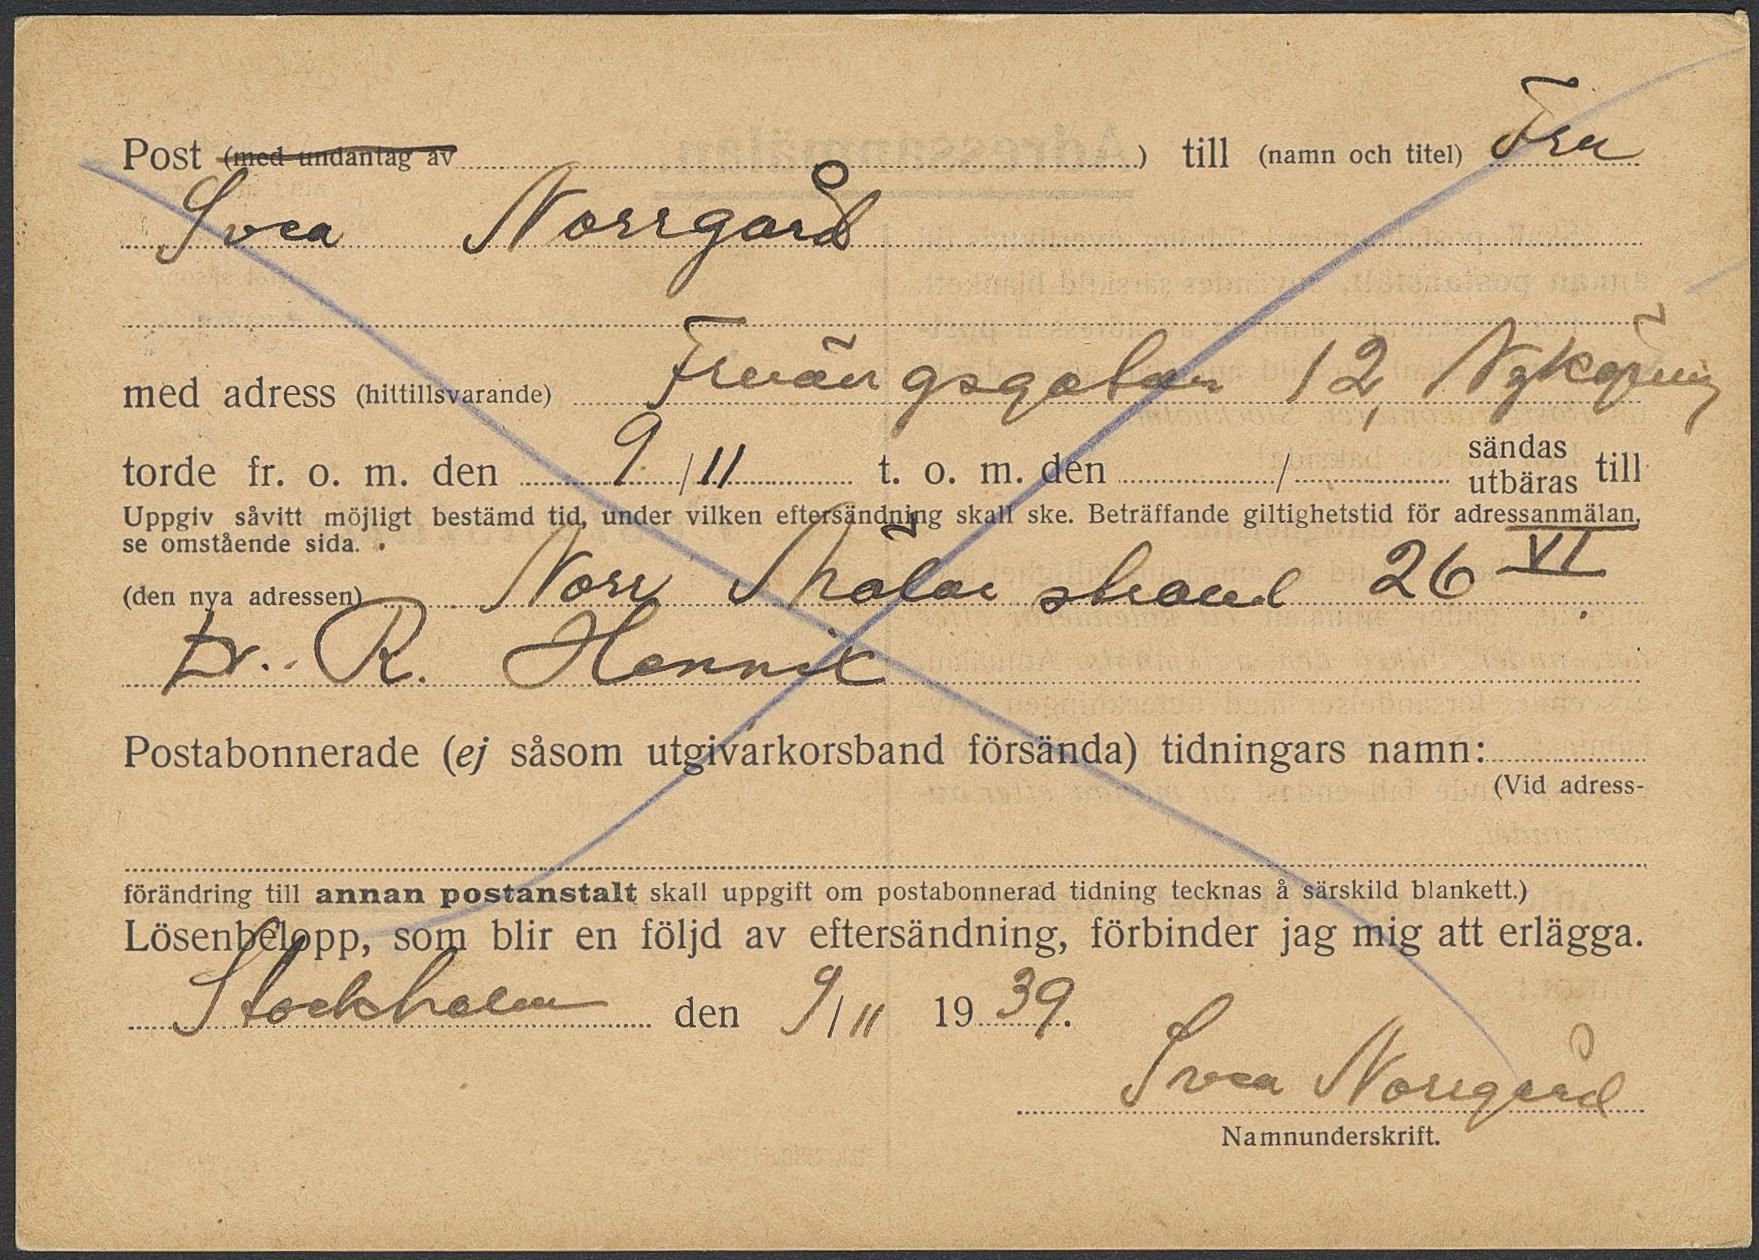 Post (med undantag av ) till (namn och titel) Fru
Svea Norrgård
med adress (hittillsvarande) Fruängsgatan 12, Nyköping
torde fr. o. m. den 9/11 t. o. m. den / sändas utbäras till
Uppgiv såvitt möjligt bestämd tid, under vilken eftersändning skall ske. Beträffande giltighetstid för adressanmälan,
se omstående sida.
(den nya adressen) Norr Mälar strand 26 VI
Dr. R. Hennix
Postabonnerade (ej såsom utgivarkorsband försända) tidningars namn:
(Vid adress-
förändring till annan postanstalt skall uppgift om postabonnerad tidning tecknas å särskild blankett.)
Lösenbelopp, som blir en följd av eftersändning, förbinder jag mig att erlägga.
Stockholm den 9/11 1939.
Svea Norrgård
Namnunderskrift.